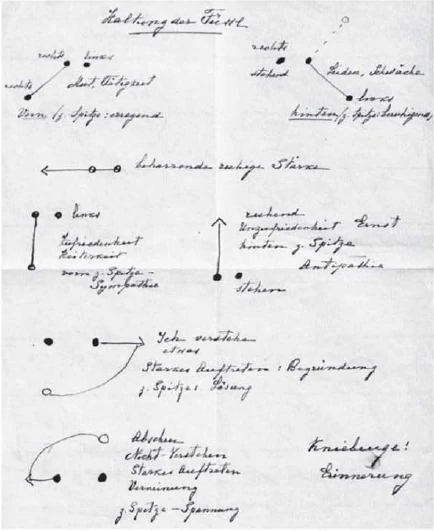 Haltung der Füsse
rechts links
rechts Mut, Tätigkeit
Vorn /z. Spitze: erregend
rechts
stehend Leiden, Schwäche
links
hinten /z. Spitze: beruhigend
beharrende ruhige Stärke
links
Zufriedenheit
Heiterkeit
vorn z. Spitze -
Sympathie
Unzufriedenheit Ernst
hinten z. Spitze
Antipathie
stehen
Ich verstehe
etwas
Starkes Auftreten: Begründung
z. Spitze: Lösung
Abscheu
Nicht Verstehen
Starkes Auftreten
Verneinung
z. Spitze - Spannung
Kniebeuge!
Erinnerung